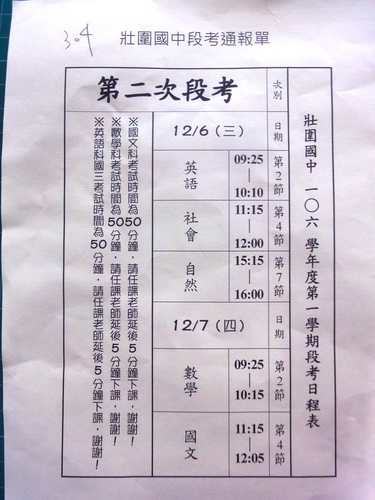 304
壯圍國中段考通報單
壯圍國中 一〇六 學年度第一學期段考日程表
次別
第二次段考
日期
12/6 (三)
第2節
09:25
|
10:10
英語
第4節
11:15
|
12:00
社會
第7節
15:15
|
16:00
自然
日期
12/7 (四)
第2節
09:25
|
10:15
數學
第4節
11:15
|
12:05
國文
※國文科考試時間為50分鐘,請任課老師延後5分鐘下課,謝謝!
※數學科考試時間為50分鐘,請任課老師延後5分鐘下課,謝謝!
※英語科國三考試時間為50分鐘,請任課老師延後5分鐘下課,謝謝!